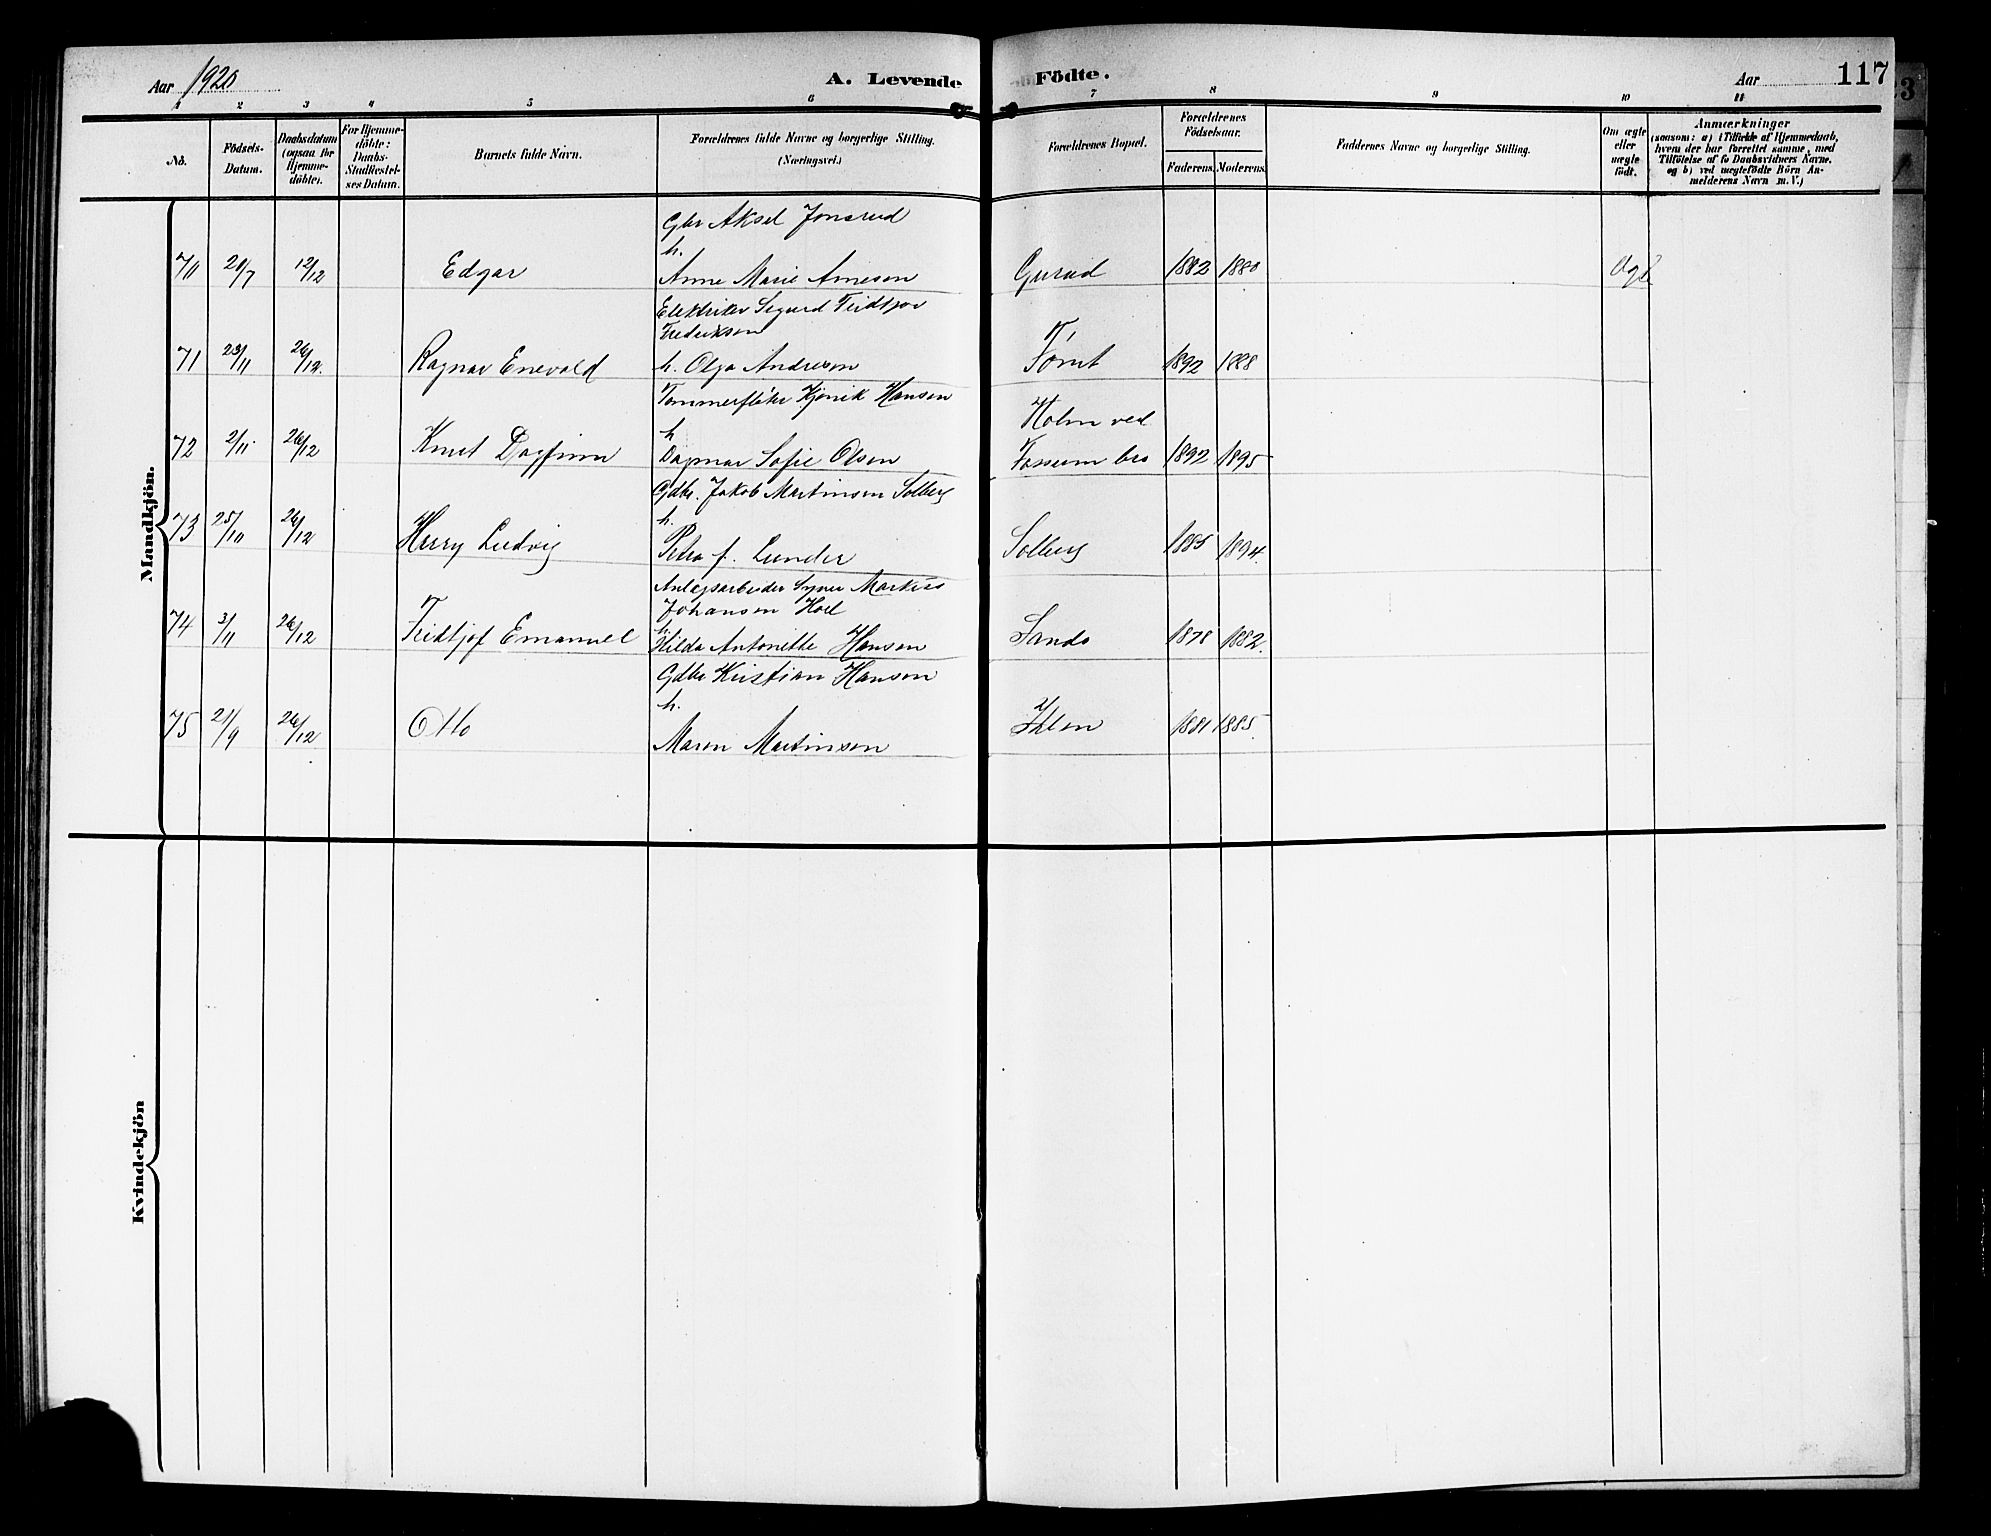 Aar 1920
A. Levende Födte.
Aar
117
1 2 3 4 5 6 7 8 9 10 11
No.
Födsels-
Datum.
Daabsdatum
(ogsaa for
Hjemme-
döbte).
For Hjemme-
döbte:
Daabs-
Stadfæstel-
ses Datum.
Barnets fulde Navn.
Forældrenes fulde Navne og borgerlige Stilling.
(Næringsvei.)
Forældrenes Bopæl.
Forældrenes
Födselsaar.
Faderens. Moderens.
Faddernes Navne og borgerlige Stilling.
Om ægte
eller
uægte
født.
Anmærkninger
(saasom: a) i Tilfælde af Hjemmedaab,
hvem der har forrettet samme, med
Tilföielse af to Daabsvidners Navne.
og b) ved uægtefödte Börn An-
melderens Navn m. V.)
Mandkjön.
Gbr Aksel Jonsrud
h.
70 20/7 12/12 Edgar Anne Marie Arneson Gurud 1882 1880 Ægte
Elektriker Sigurd Fridtjov
Fredrikson
71 23/11 26/12. Ragnar Enevold h. Olga Andreson Tomt 1892 1888
Tømmerfløter Kjonik Hansen
h Holm ved
72 2/11 26/12 Knut Dagfinn Dagmar Sofie Olsen Fossum bro 1892 1895
Gdbr. Jakob Martinsen Solberg
h.
73 25/10 26/12 Harry Ludvig Petra f. Lunder Solberg 1885 1894.
Anlegsarbeider Syver Markus
Johansen Hoel
h.
74 3/11 26/12 Fridtjof Emanuel Hilda Antonette Hansen Sando 1878 1882.
Gdbr Kristian Hansen
h.
75 21/9 26/12 Otto Maren Martinsen Ihlen 1881 1885
Kvindekjön